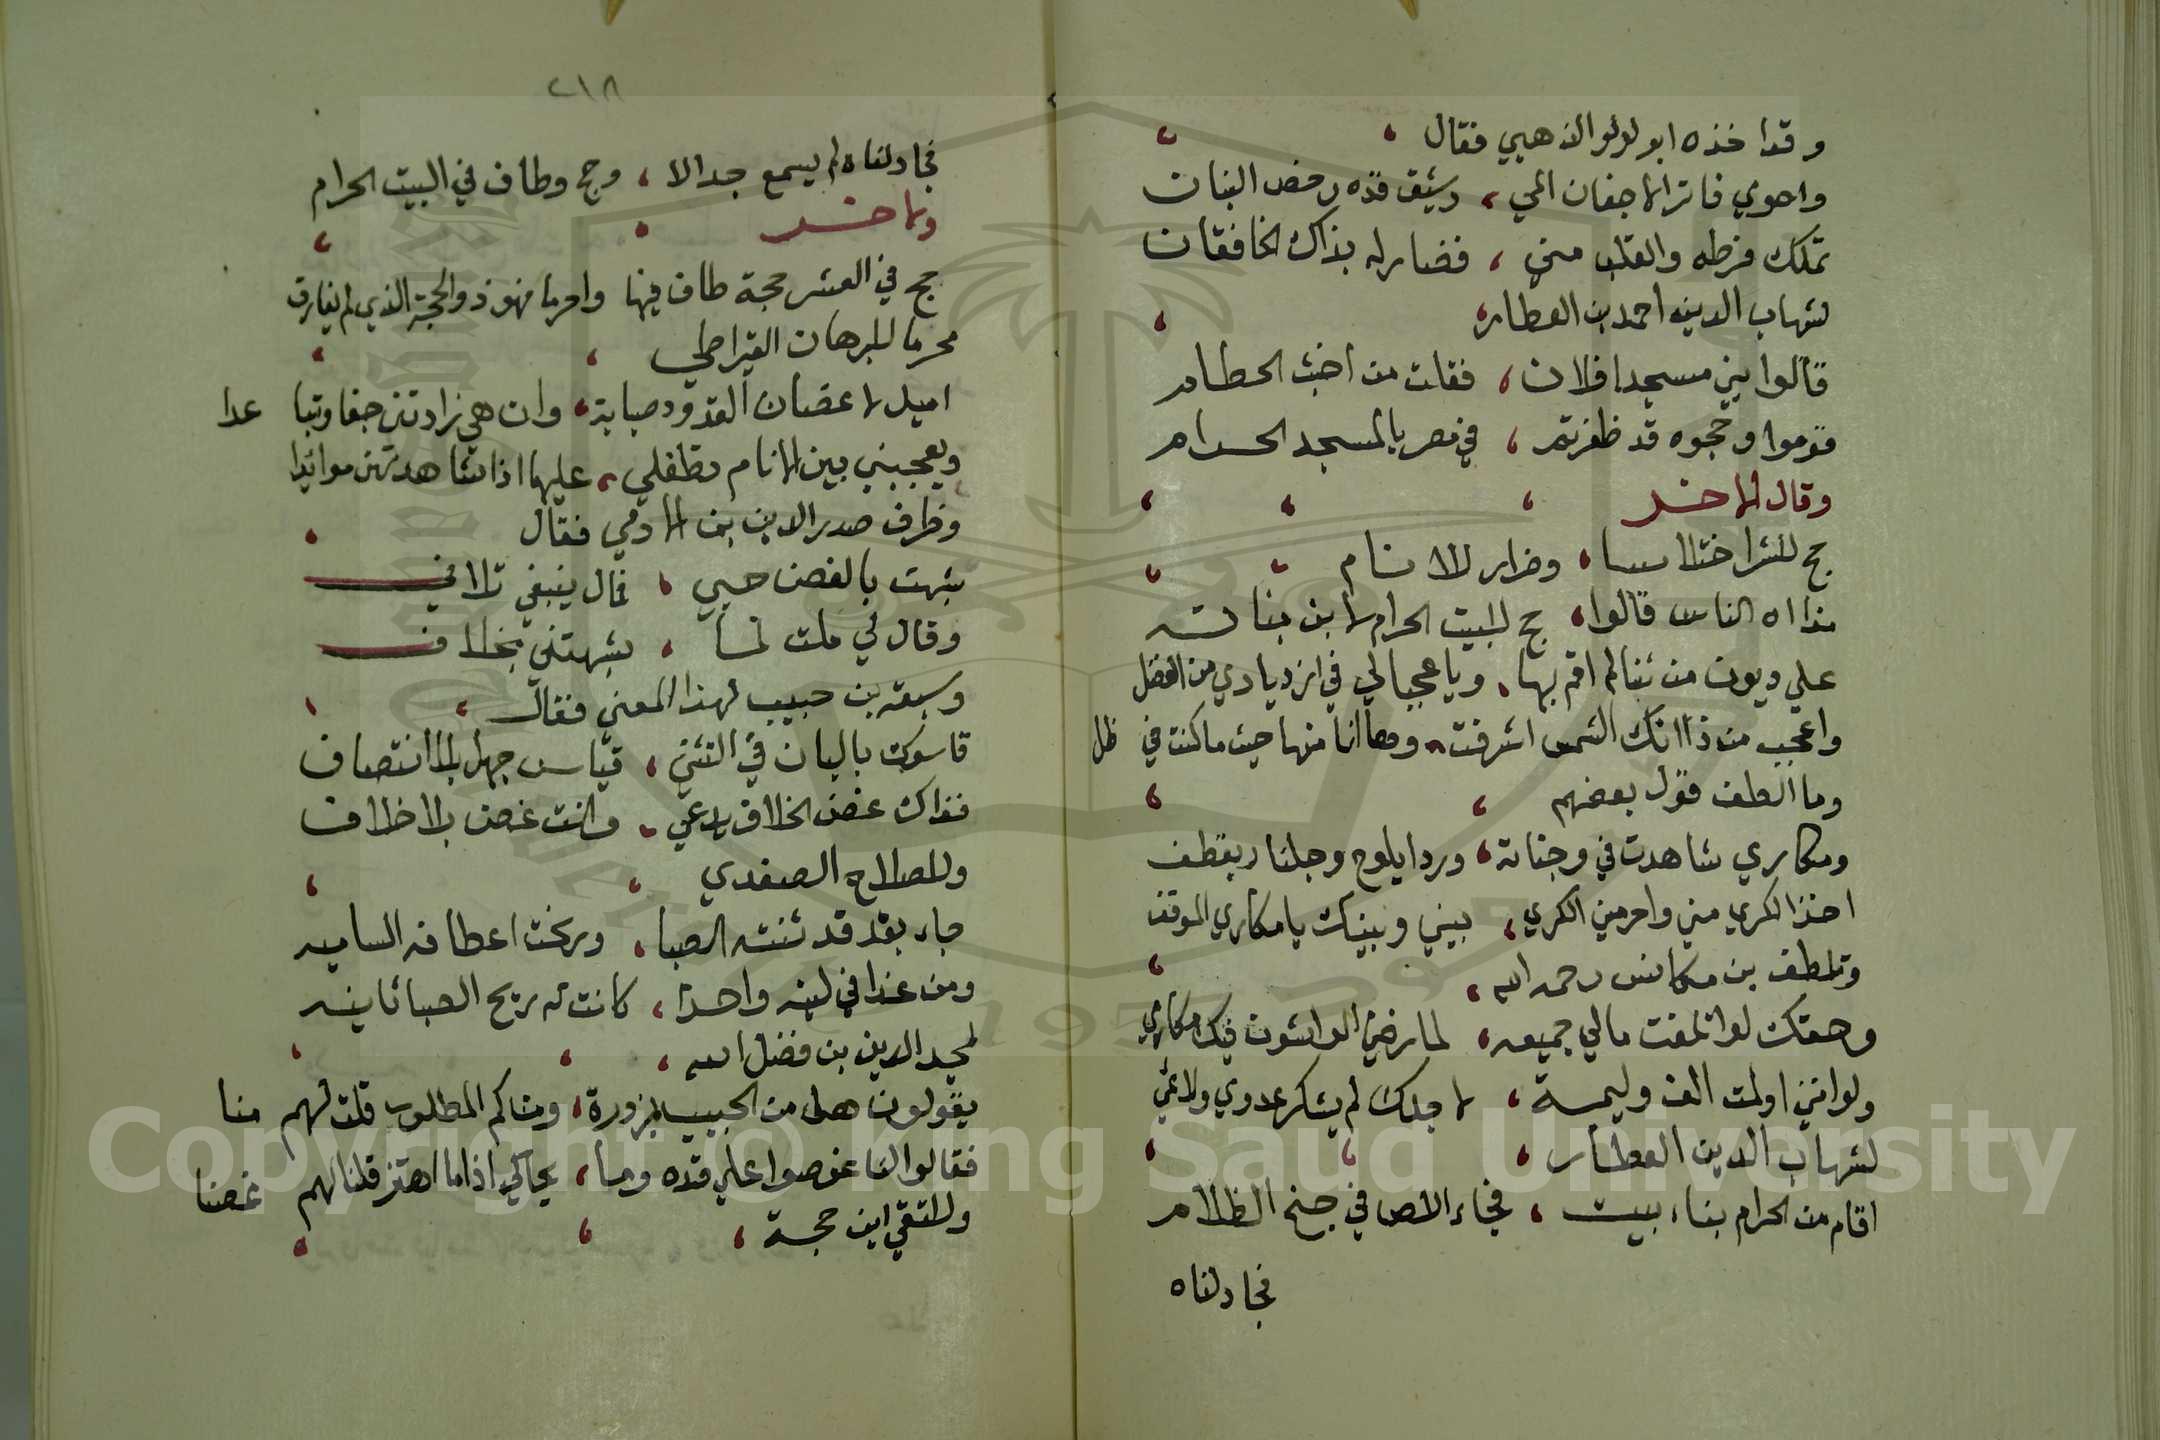 وقد اخذه ابو لولو الذهبي فقال
واحوي فاتر الاجفان المي ، رشيق قده رخص البنان
تملك قرطه والقلب مني ، فصار له بذاك الخافقان
لشهاب الدين احمد بن العطار
قالوا بني مسجدا فلان ، فقلت من اخبث الحطام
قوموا وحجوه قد ظفرتم ، في مصر بالمسجد الحرام
وقال الاخر
حج للشر اختلاسا ، وضرار للانام
مذ اه الناس قالوا ، حج للبيت الحرام لابن نباته
علي ديون من ثنا لم اقم بها ، ويا عجبا لي في ازديادي من الفضل
واعجب من ذا انك الشمس اشرقت ، وها انا منها حيث ما كنت في ظل
وما الطف قول بعضهم
ومكاري شاهدت في وجناته ، وردا يلوح وجلنار يقطف
اخذ الكري مني واحرمني الكري ، بيني وبينك يا مكاري الموقف
وتلطف بن مكانس رحمه الله ،
وحقك لو اتلفت مالي جميعه ، لما رضي الواشون فيك مكاري
ولو انني اولمت الف وليمة ، لاجلك لم يشكر عدوي ولا
لشهاب الدين العطار
اقام من الحرام بناء بيت ، فجاء الاصا في جنح الظلام
فجادلناه
٢١٨
فجادلناه لم يسمع جدالا ، وحج وطاف في البيت الحرام
ولاخر
حج في العشر حجة طاف فيها واحرما فهو ذو الحجة الذي لم يفارق
محرما للبرهان القيراطي
اميل لاغصان القدود صبابة ، وان هي زادتني جفا وتباعدا
ويعجبني بين الانام تطفلي ، عليها اذا شاهدتهن موائدا
وظرف صدر الدين بن الادمي فقال
شبهت بالغصن حبي ، فمال ينبغي تلافي
وقال لي ملت لما ، شبهتني بخلاف
وسبقه بن حبيب لهذا المعني فقال
قاسوك بالبان في التثني ، قياس جهل بلا انتصاف
فذاك غصن الخلاف يدعي ، وانت غصن بلا خلاف
وللصلاح الصفدي
جاء بقد قد ثنته الصبا ، ورنحت اعطافه الساميه
ومن غدا في لينه واحدا ، كانت له ريح الصبا ثانيه
لمجد الدين بن فضل الله ،
يقولون هل من الحبيب بزورة ، ومناكم المطلوب قلت لهم منا
فقالوا لنا غوصوا علي قده وما ، يحاكي اذا ما اهتز قلنا لهم غصنا
وللتقي ابن حجة ،
Copyright © King Saud University